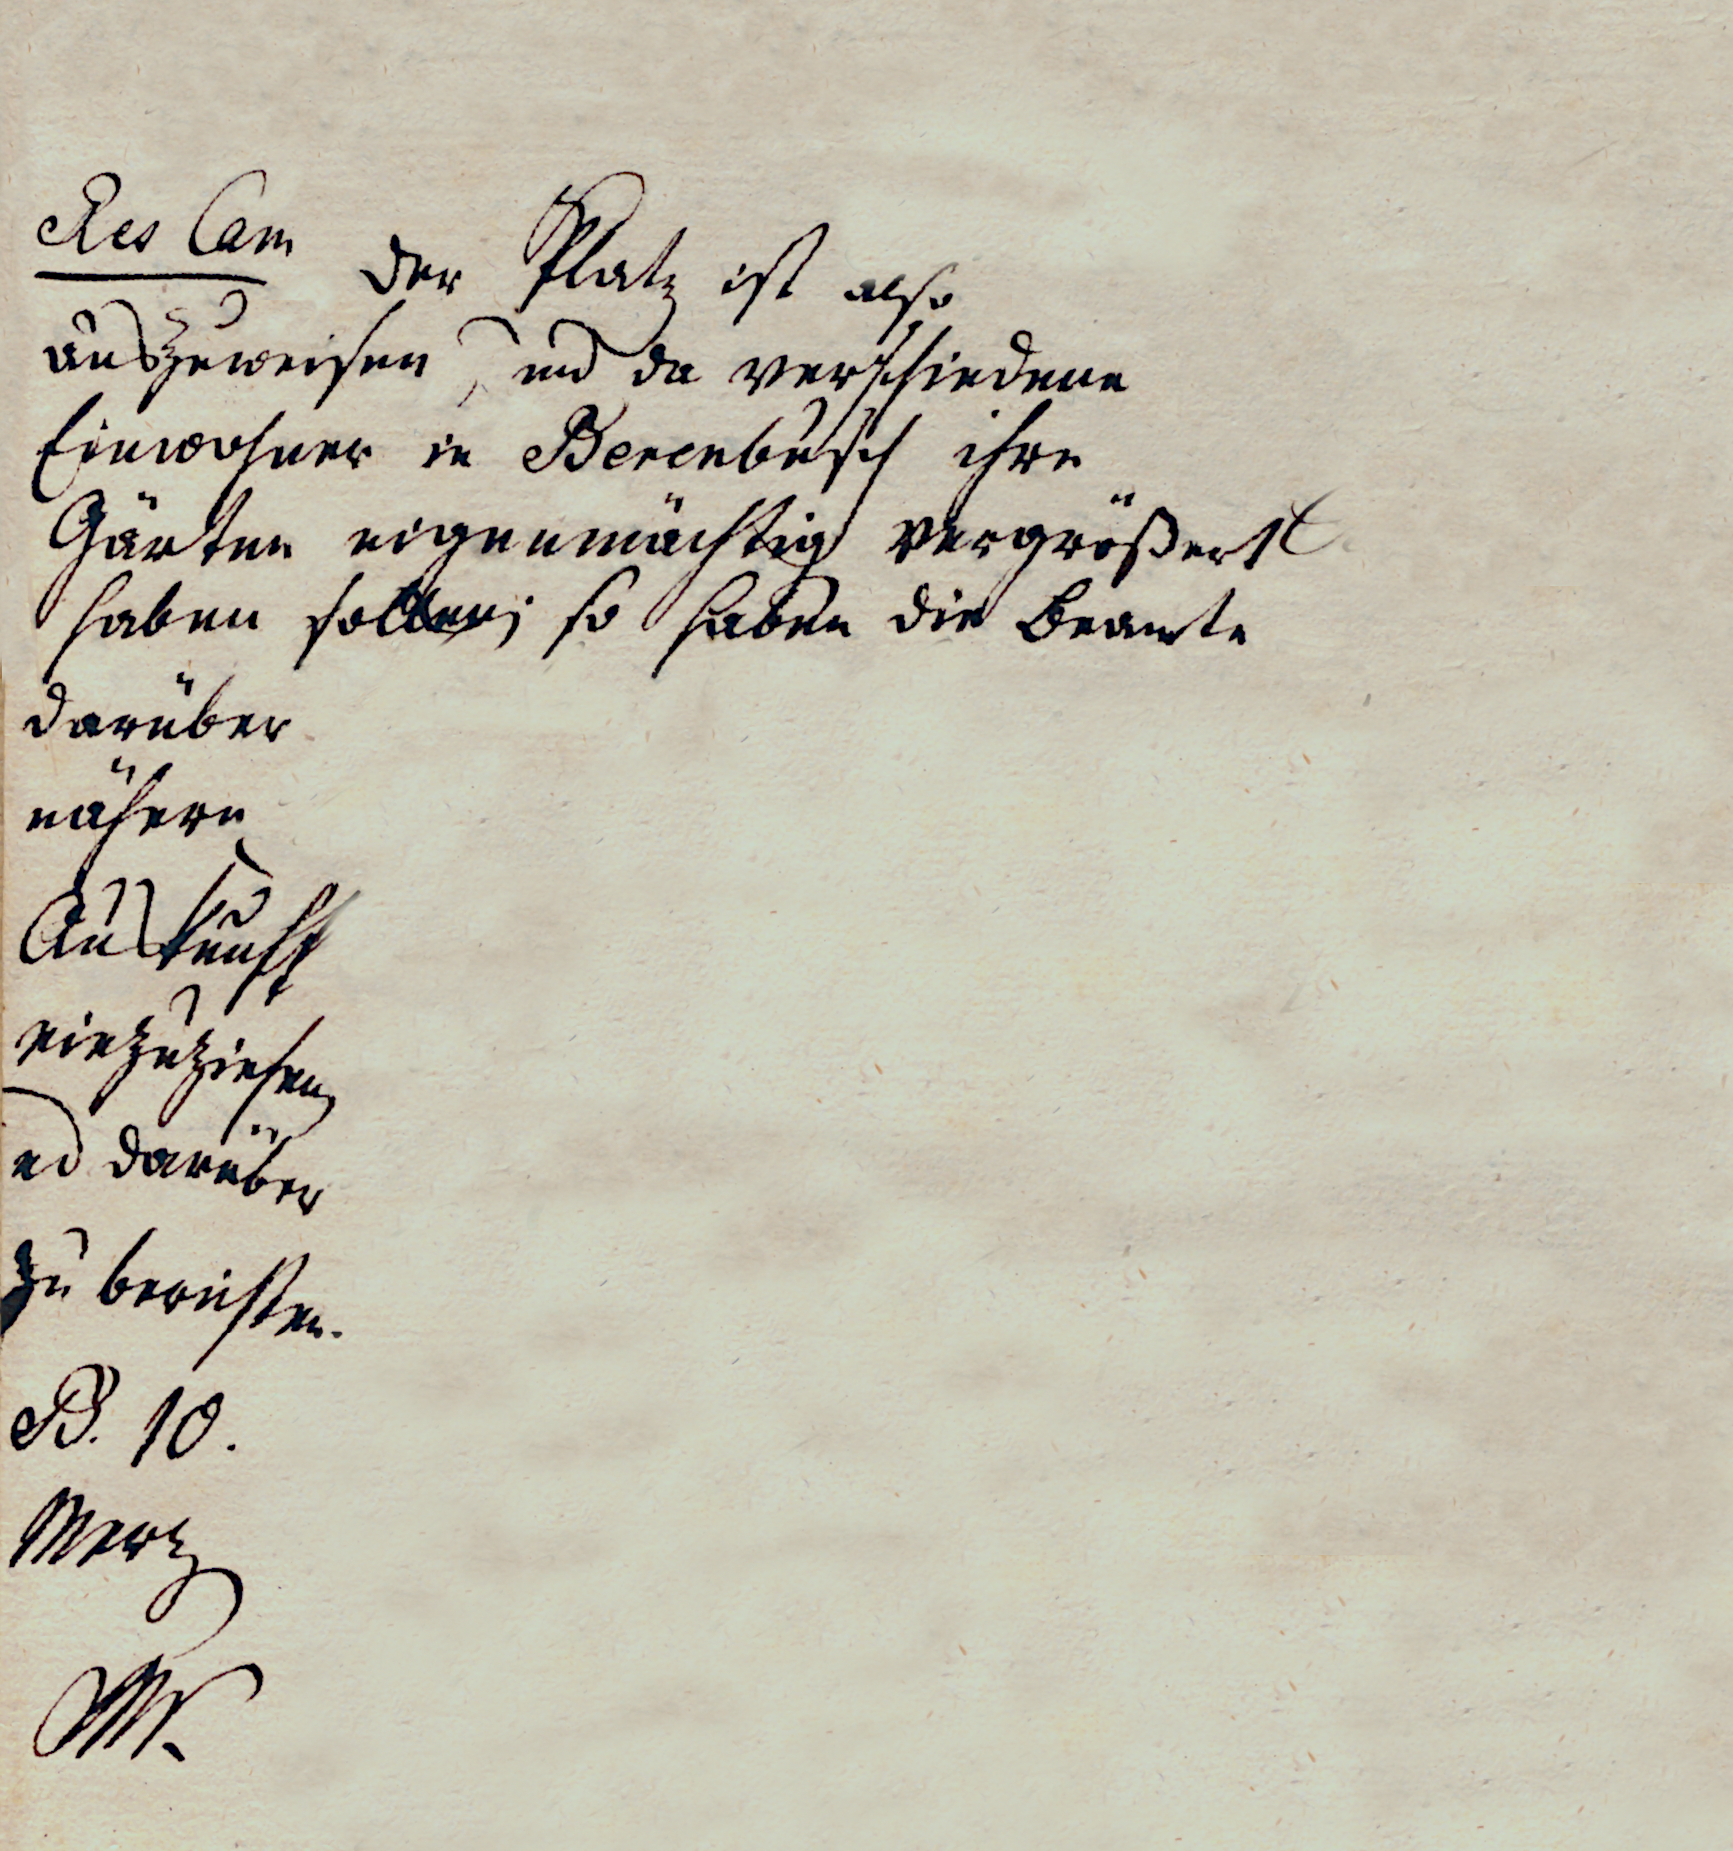 Res Cam
Der Platz ist also
auszuweisen, und da verschiedene
Einwohner in Berenbusch ihre
Gärten eigenmächtig vergrößert
haben sollen; so haben die Beamte
darüber
nähere
Auskunft
einzuziehen
und darüber
zu berichten.
B. 10.
Merz